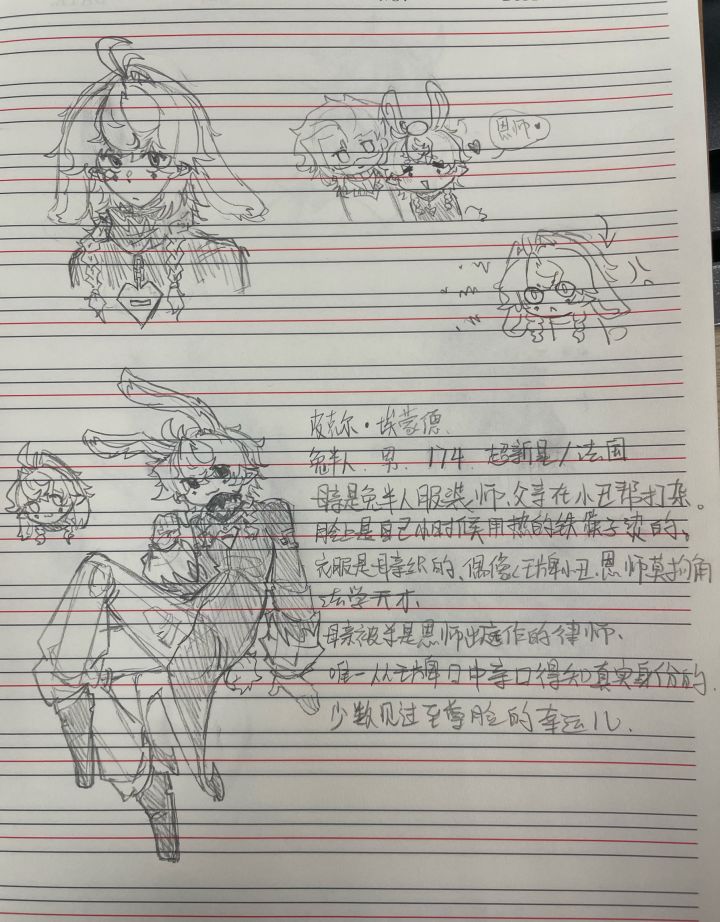 恩师♥
皮克尔·埃蒙德
兔半人.男.174.超新星/法国
母亲是兔半人服装师,父亲在小丑帮打杂。
脸上是自己小时候用热的铁筷子烫的。
衣服是母亲织的、偶像(王牌小丑.恩师莫扚角
法学天才.
母亲被杀是恩师出庭作的律师.
唯一从王牌口中亲口得知真实身份的.
少数见过至尊脸的幸运儿.